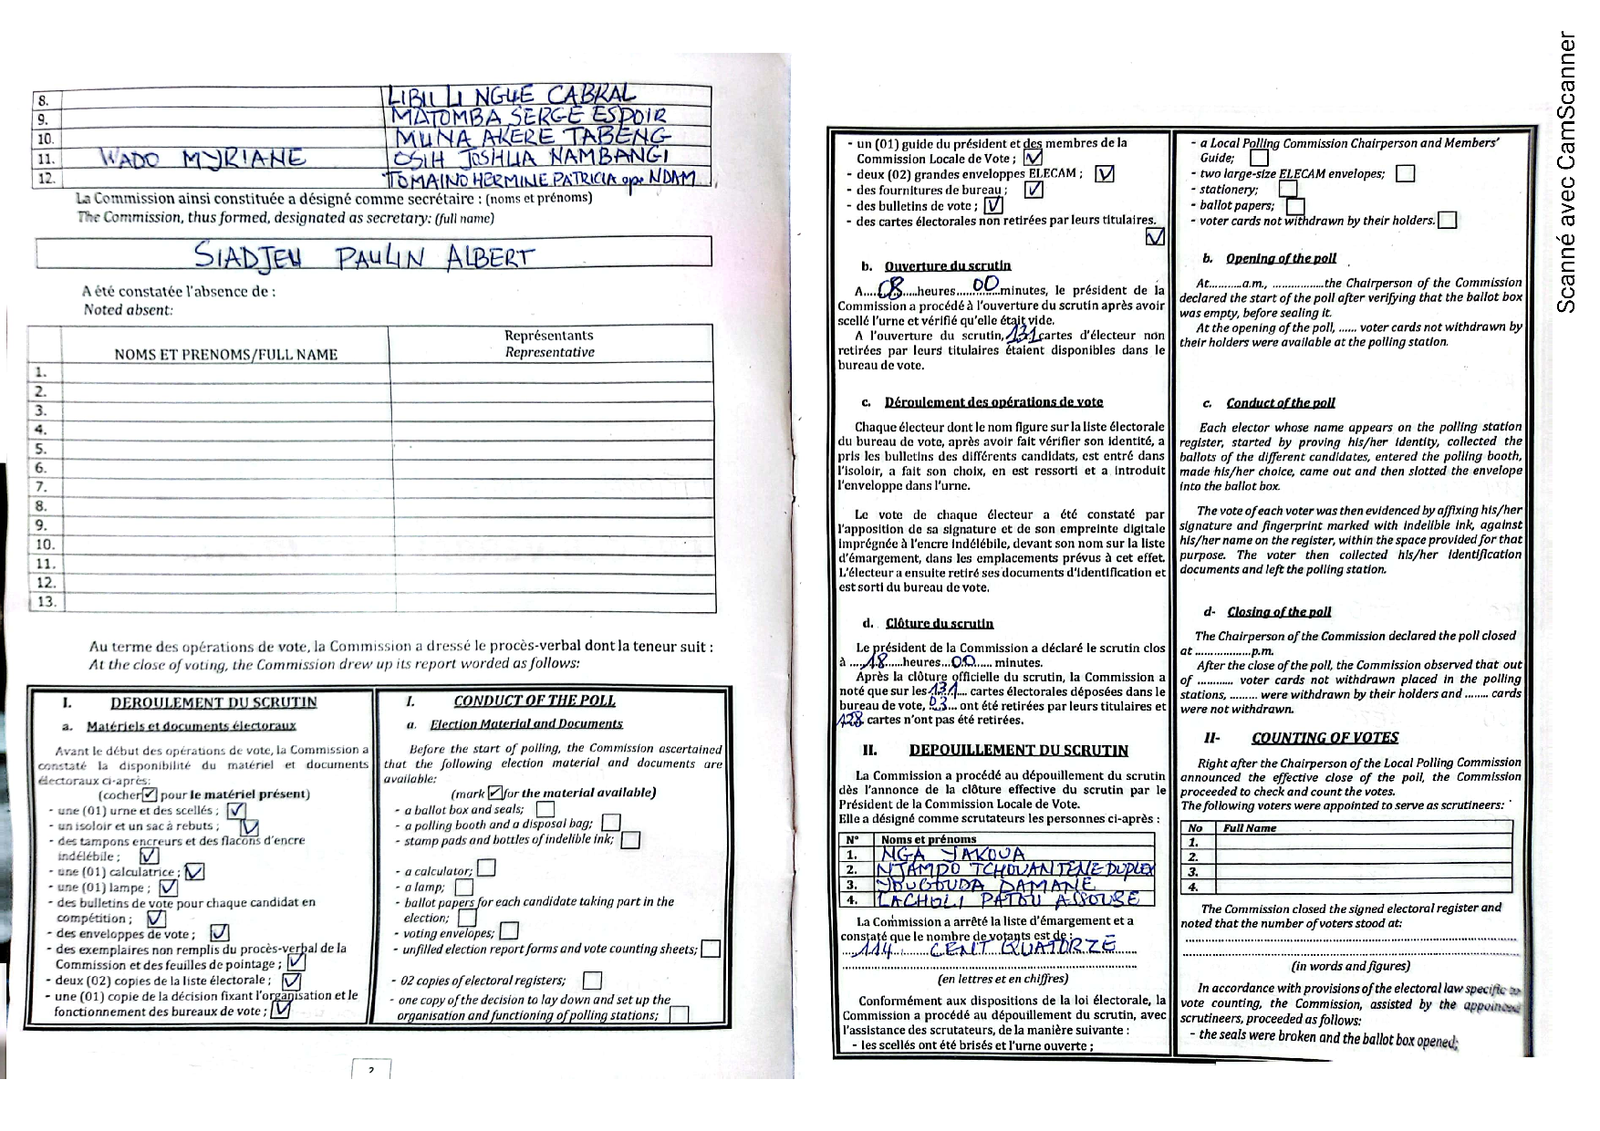 8. LIBII LI NGUE CABRAL
9. MATOMBA SERGE ESPOIR
10. MUNA AKERE TABENG
11. WADO MYRIANE OSIH JOSHUA NAMBANGI
12. TOMAINO HERMINE PATRICIA epe NDAM
La Commission ainsi constituée a désigné comme secrétaire : (noms et prénoms)
The Commission, thus formed, designated as secretary: (full name)
SIADJEU PAULIN ALBERT
A été constatée l'absence de :
Noted absent:
NOMS ET PRENOMS/FULL NAME
Représentants
Representative
1.
2.
3.
4.
5.
6.
7.
8.
9.
10.
11.
12.
13.
Au terme des opérations de vote, la Commission a dressé le procès-verbal dont la teneur suit :
At the close of voting, the Commission drew up its report worded as follows:
I. DEROULEMENT DU SCRUTIN
a. Matériels et documents électoraux
Avant le début des opérations de vote, la Commission a
constaté la disponibilité du matériel et documents
électoraux ci-après:
(cocher ✓ pour le matériel présent)
- une (01) urne et des scellés ; ✓
- un isoloir et un sac à rebuts ; ✓
- des tampons encreurs et des flacons d'encre
indélébile ; ✓
- une (01) calculatrice ; ✓
- une (01) lampe ; ✓
- des bulletins de vote pour chaque candidat en
compétition ; ✓
- des enveloppes de vote ; ✓
- des exemplaires non remplis du procès-verbal de la
Commission et des feuilles de pointage ; ✓
- deux (02) copies de la liste électorale ; ✓
- une (01) copie de la décision fixant l'organisation et le
fonctionnement des bureaux de vote ; ✓
I. CONDUCT OF THE POLL
a. Election Material and Documents
Before the start of polling, the Commission ascertained
that the following election material and documents are
available:
(mark ✓ for the material available)
- a ballot box and seals;
- a polling booth and a disposal bag;
- stamp pads and bottles of indelible ink;
- a calculator;
- a lamp;
- ballot papers for each candidate taking part in the
election;
- voting envelopes;
- unfilled election report forms and vote counting sheets;
- 02 copies of electoral registers;
- one copy of the decision to lay down and set up the
organisation and functioning of polling stations;
2
- un (01) guide du président et des membres de la
Commission Locale de Vote ; ✓
- deux (02) grandes enveloppes ELECAM ; ✓
- des fournitures de bureau ; ✓
- des bulletins de vote ; ✓
- des cartes électorales non retirées par leurs titulaires.
✓
b. Ouverture du scrutin
A....08....heures....00....minutes, le président de la
Commission a procédé à l'ouverture du scrutin après avoir
scellé l'urne et vérifié qu'elle était vide.
A l'ouverture du scrutin, 131 cartes d'électeur non
retirées par leurs titulaires étaient disponibles dans le
bureau de vote.
c. Déroulement des opérations de vote
Chaque électeur dont le nom figure sur la liste électorale
du bureau de vote, après avoir fait vérifier son identité, a
pris les bulletins des différents candidats, est entré dans
l'isoloir, a fait son choix, en est ressorti et a introduit
l'enveloppe dans l'urne.
Le vote de chaque électeur a été constaté par
l'apposition de sa signature et de son empreinte digitale
imprégnée à l'encre indélébile, devant son nom sur la liste
d'émargement, dans les emplacements prévus à cet effet.
L'électeur a ensuite retiré ses documents d'identification et
est sorti du bureau de vote.
d. Clôture du scrutin
Le président de la Commission a déclaré le scrutin clos
à ....18....heures...00...... minutes.
Après la clôture officielle du scrutin, la Commission a
noté que sur les 131 cartes électorales déposées dans le
bureau de vote, 03 ont été retirées par leurs titulaires et
128 cartes n'ont pas été retirées.
II. DEPOUILLEMENT DU SCRUTIN
La Commission a procédé au dépouillement du scrutin
dès l'annonce de la clôture effective du scrutin par le
Président de la Commission Locale de Vote.
Elle a désigné comme scrutateurs les personnes ci-après :
N° Noms et prénoms
1. NGA YAKOUA
2. NJAMPO TCHOUANTENE DUPLEX
3. DAMANE
4. PATOU
La Commission a arrêté la liste d'émargement et a
constaté que le nombre de votants est de :
114 CENT QUATORZE
(en lettres et en chiffres)
Conformément aux dispositions de la loi électorale, la
Commission a procédé au dépouillement du scrutin, avec
l'assistance des scrutateurs, de la manière suivante :
- les scellés ont été brisés et l'urne ouverte ;
- a Local Polling Commission Chairperson and Members'
Guide;
- two large-size ELECAM envelopes;
- stationery;
- ballot papers;
- voter cards not withdrawn by their holders.
b. Opening of the poll
At...........a.m., .................the Chairperson of the Commission
declared the start of the poll after verifying that the ballot box
was empty, before sealing it.
At the opening of the poll, ...... voter cards not withdrawn by
their holders were available at the polling station.
c. Conduct of the poll
Each elector whose name appears on the polling station
register, started by proving his/her identity, collected the
ballots of the different candidates, entered the polling booth,
made his/her choice, came out and then slotted the envelope
into the ballot box.
The vote of each voter was then evidenced by affixing his/her
signature and fingerprint marked with indelible ink, against
his/her name on the register, within the space provided for that
purpose. The voter then collected his/her identification
documents and left the polling station.
d- Closing of the poll
The Chairperson of the Commission declared the poll closed
at ..................p.m.
After the close of the poll, the Commission observed that out
of ............ voter cards not withdrawn placed in the polling
stations, ......... were withdrawn by their holders and ........ cards
were not withdrawn.
II- COUNTING OF VOTES
Right after the Chairperson of the Local Polling Commission
announced the effective close of the poll, the Commission
proceeded to check and count the votes.
The following voters were appointed to serve as scrutineers:
No Full Name
1.
2.
3.
4.
The Commission closed the signed electoral register and
noted that the number of voters stood at:
(in words and figures)
In accordance with provisions of the electoral law specific to
vote counting, the Commission, assisted by the appointed
scrutineers, proceeded as follows:
- the seals were broken and the ballot box opened;
Scanné avec CamScanner